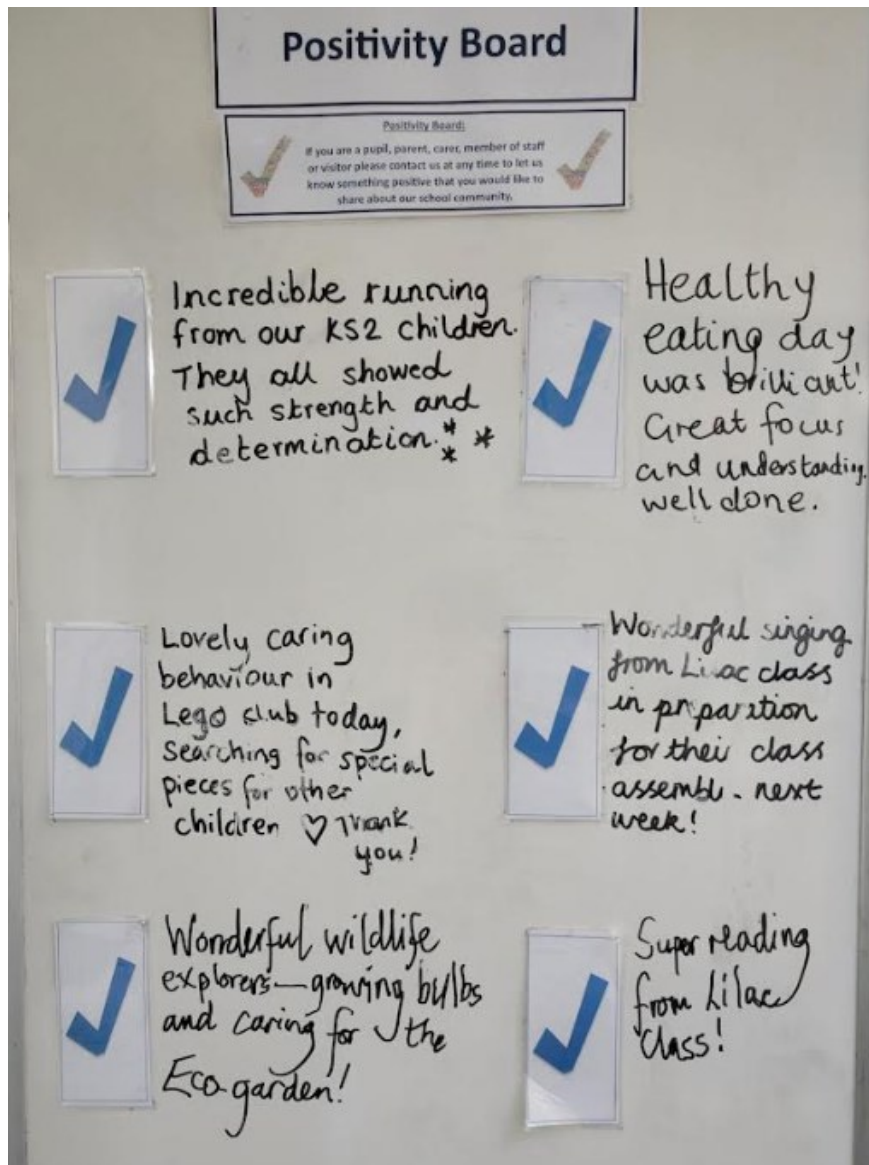 Positivity Board
Positivity Board:
If you are a pupil, parent, carer, member of staff
or visitor please contact us at any time to let us
know something positive that you would like to
share about our school community.
Incredible running
from our KS2 children.
They all showed
such strength and
determination.***
Healthy
eating day
was brilliant!
Great focus
and understanding.
well done.
Lovely caring
behaviour in
Lego club today,
searching for special
pieces for other
children ♡ Thank
you!
Wonderful singing
from Lilac class
in preparation
for their class
assembl. next
week!
Wonderful wildlife
explorers—growing bulbs
and caring for the
Eco-garden!
Super reading
from Lilac
Class!